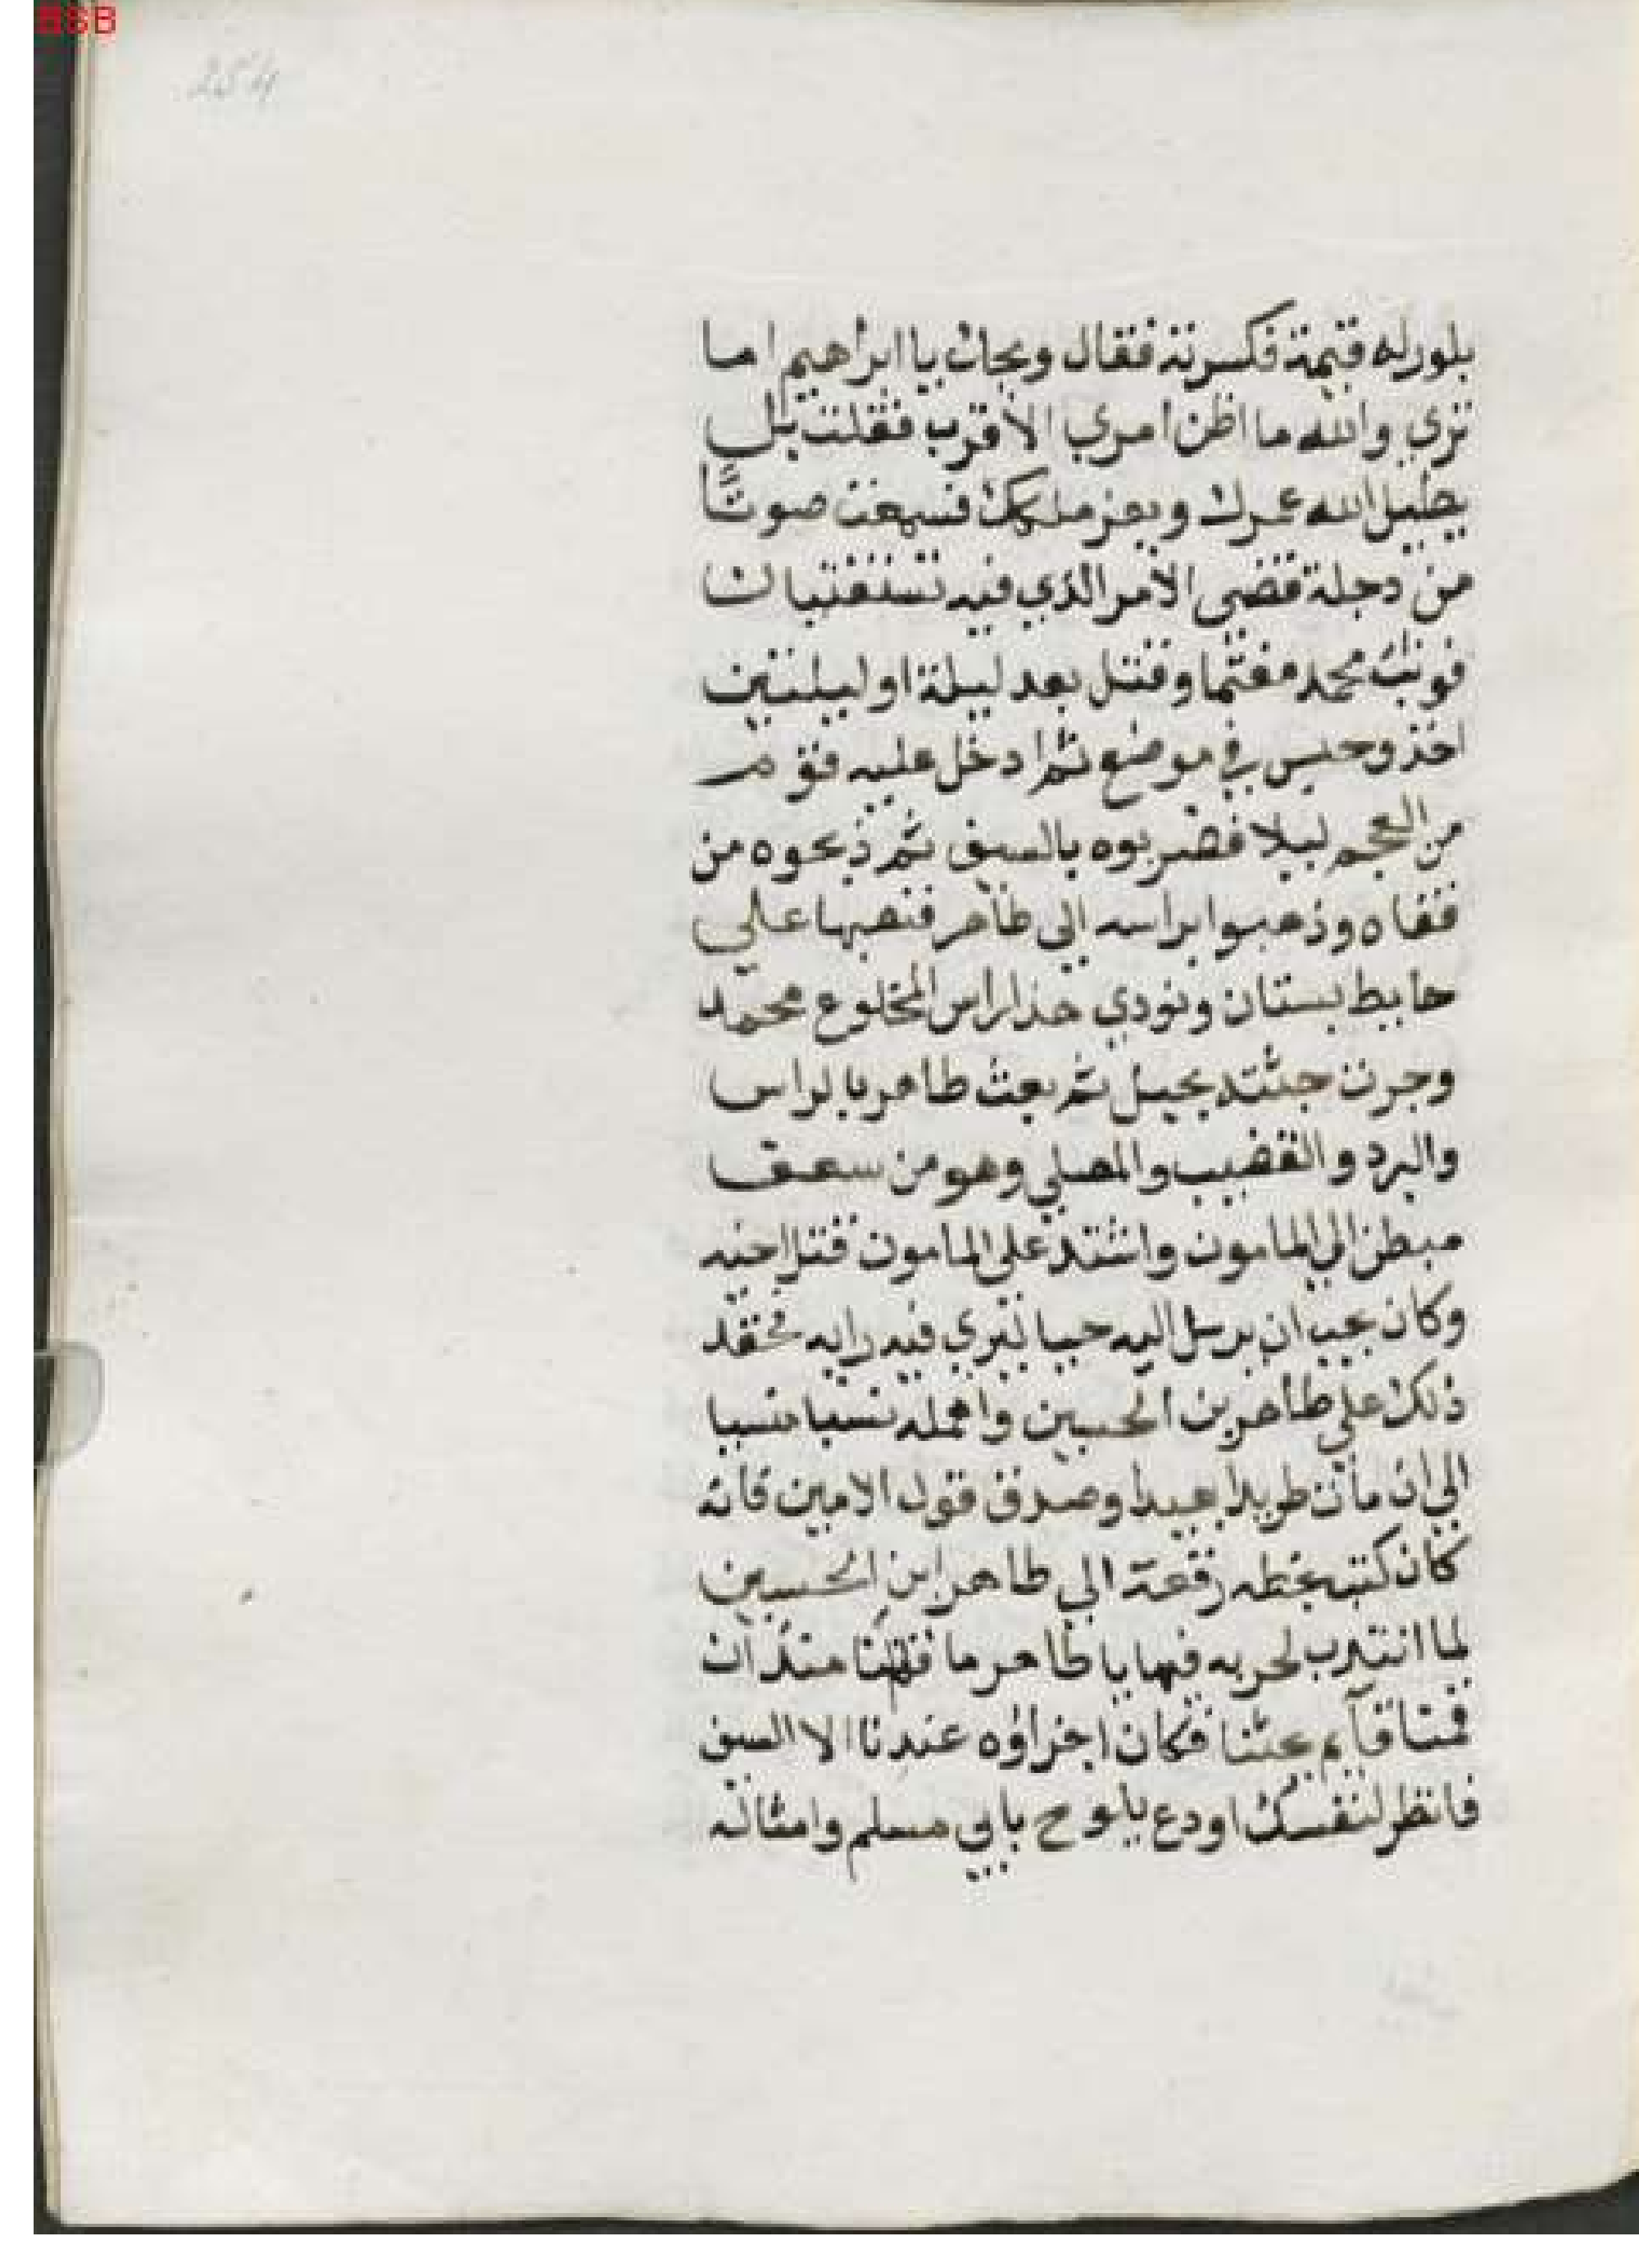 254
بلور له قيمة فكسرته فقال ويحك يا ابراهيم اما
تري والله ما اظن امري الا قرب فقلت بل
يطيل الله عمرك ويعز ملكك فسمعت صوتًا
من دجلة قضى الامر الذي فيه تستفتيان
فوثب محمد مغتما وقتل بعد ليلة او ليلتين
اخذ وحبس في موضع ثم ادخل عليه قوم
من العجم ليلا فضربوه بالسيف ثم ذبحوه من
قفاه وذهبوا براسه الى طاهر فنصبها على
حايط بستان ونودي هذا راس المخلوع محمد
وجرت جثته بحبل ثم بعث طاهر بالراس
والبرد والقضيب والمصلي وهو من سعف
مبطن الي المامون واشتد على المامون قتل اخيه
وكان يحب ان يرسل اليه حيا ليري فيه رايه فحقد
ذلك علي طاهر بن الحسين واهمله نسيا منسيا
الي ان مات طريدا بعيدا وصدق قول الامين فانه
كان كتب بخطه رقعة الي طاهر ابن الحسين
لما انتدب لحربه فيها يا طاهر ما منذ ان
قمنا قايم بحقنا فكان اجزاؤه عندنا الا السيف
فانظر لنفسك او دع يلوح بابي مسلم وامثاله